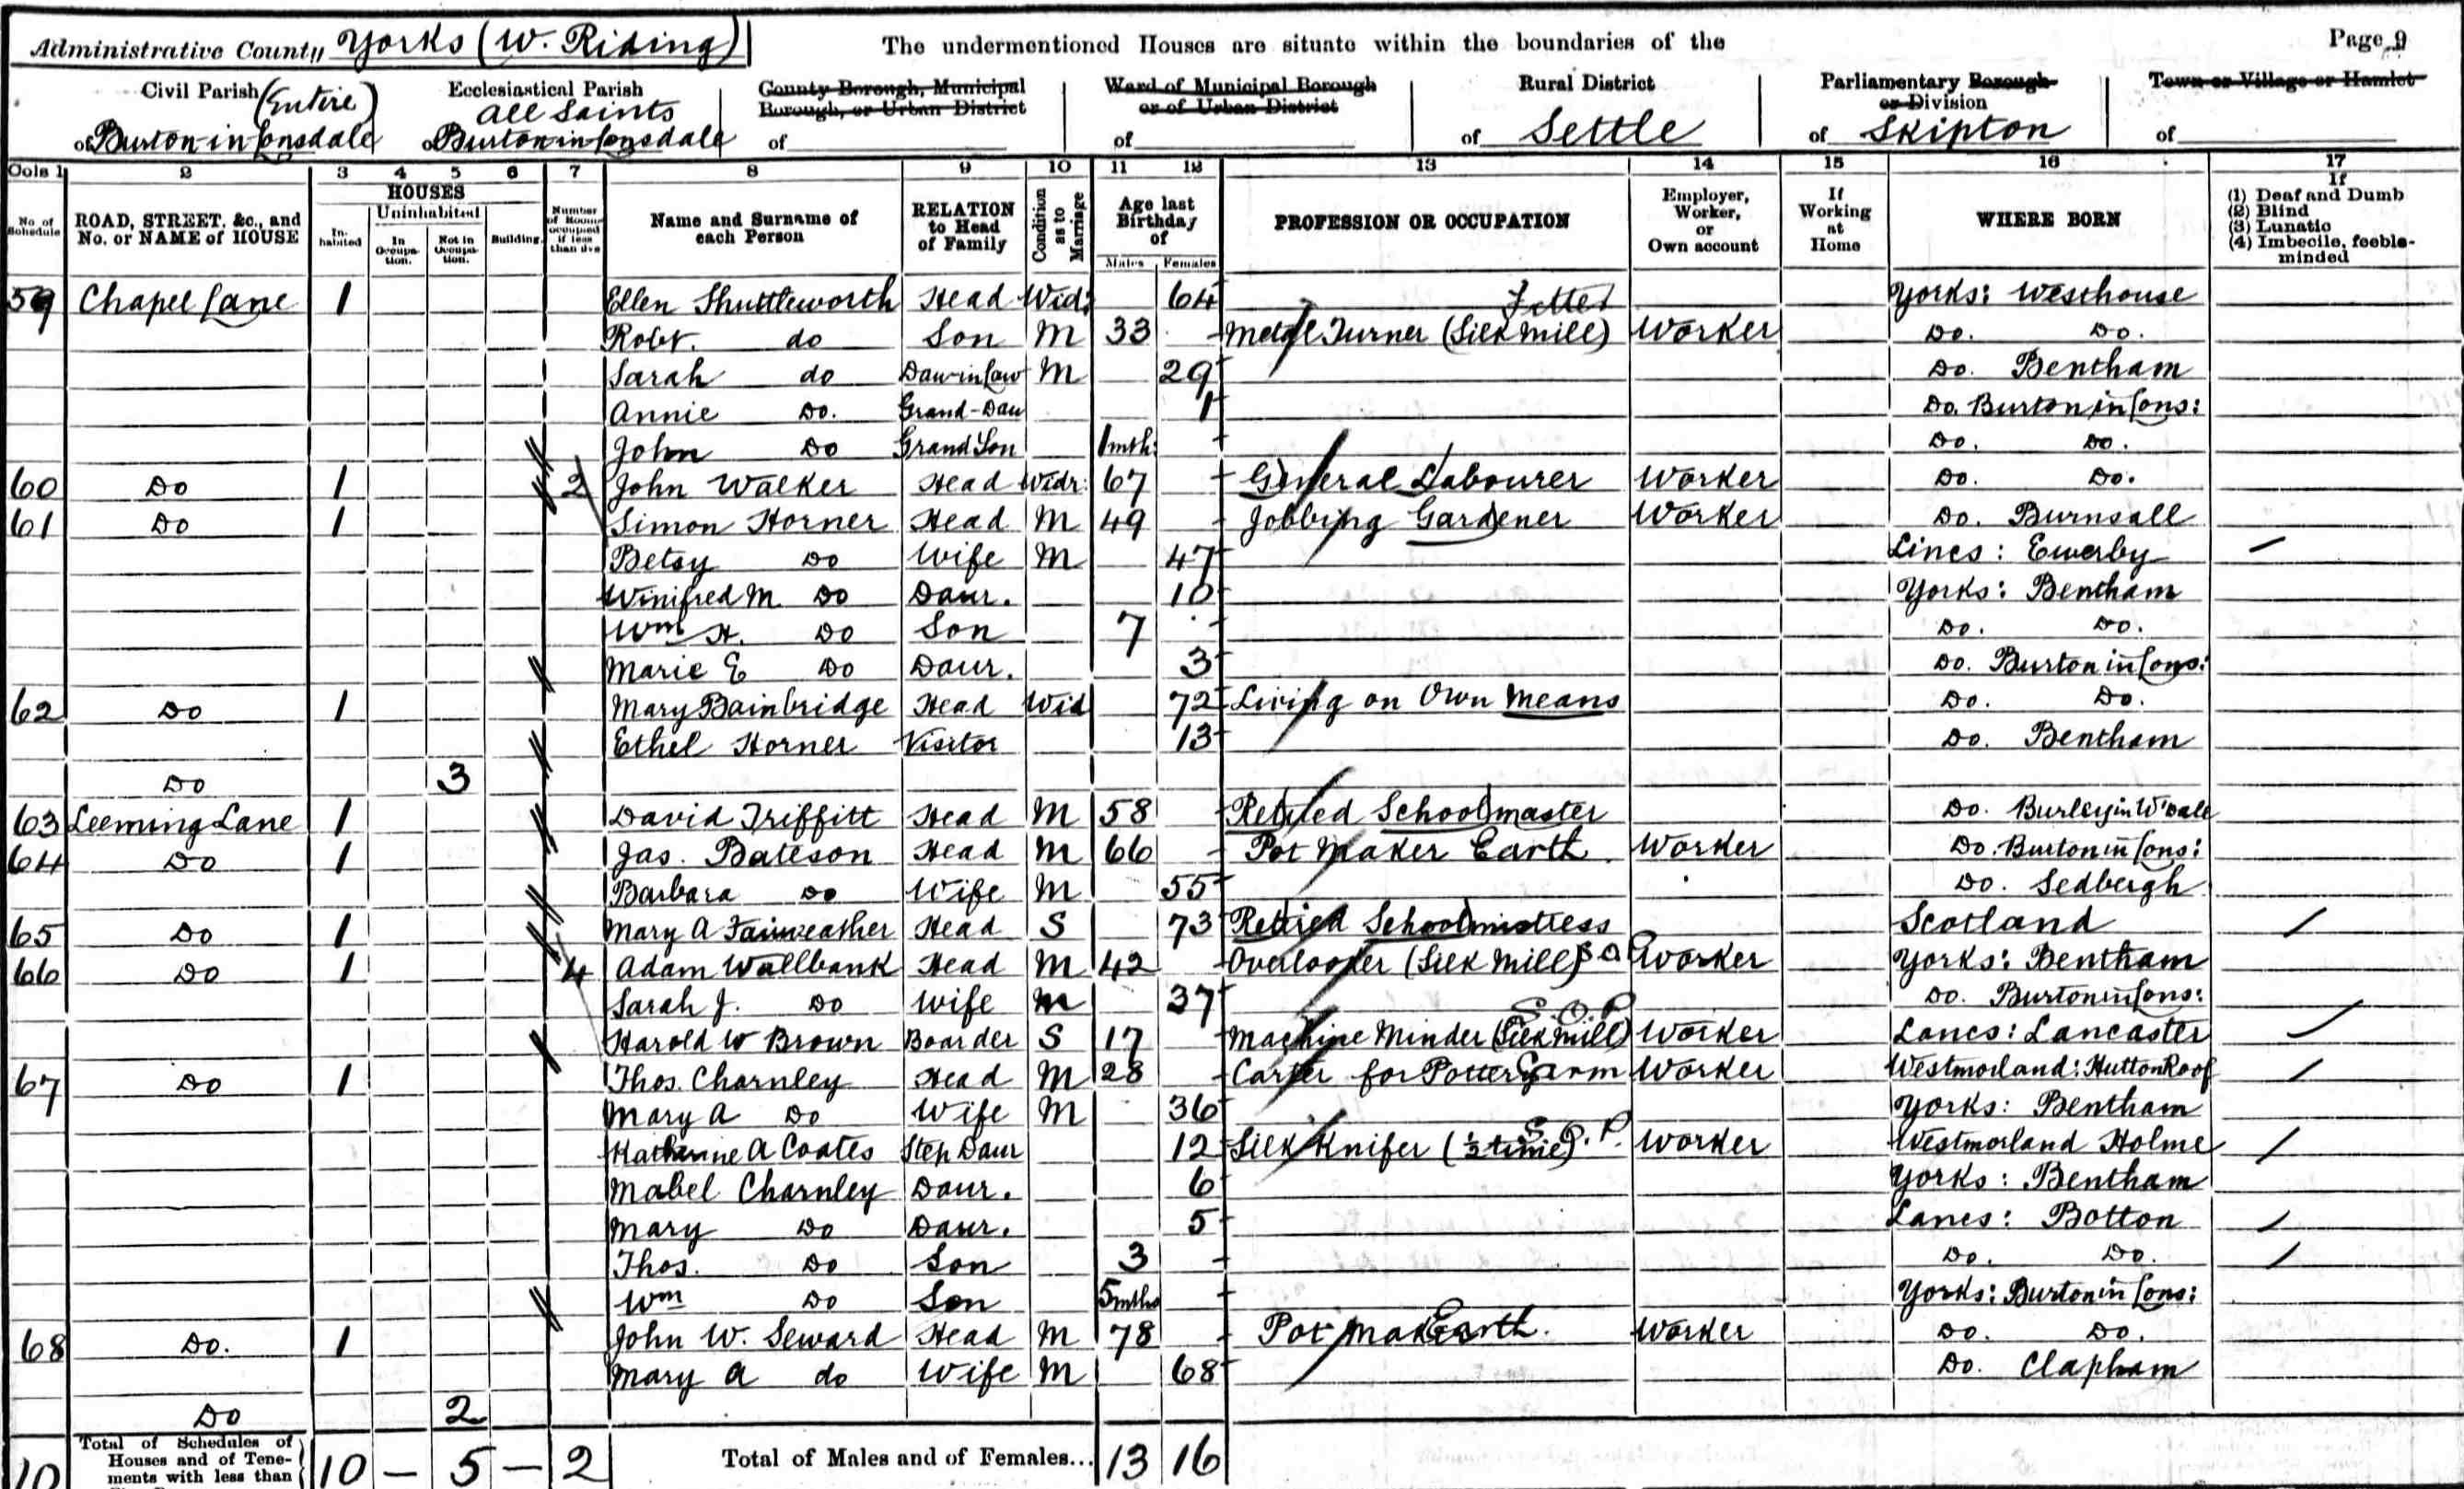 Administrative County Yorks (W. Riding) The undermentioned Houses are situate within the boundaries of the Page 9
Civil Parish (Entire) of Burton-in-Lonsdale
Ecclesiastical Parish All Saints of Burton in Lonsdale
County Borough, Municipal Borough, or Urban District of
Ward of Municipal Borough or of Urban District of
Rural District of Settle
Parliamentary Borough or Division of Skipton
Town or Village or Hamlet of
Cols 1 2 3 4 5 6 7 8 9 10 11 12 13 14 15 16 17
No. of Schedule
ROAD, STREET, &c., and No. or NAME of HOUSE
HOUSES
Inhabited
Uninhabited
In Occupation.
Not in Occupation.
Building.
Number of Rooms occupied if less than five
Name and Surname of each Person
RELATION to Head of Family
Condition as to Marriage
Age last Birthday of
Males Females
PROFESSION OR OCCUPATION
Employer, Worker, or Own account
If Working at Home
WHERE BORN
If
(1) Deaf and Dumb
(2) Blind
(3) Lunatic
(4) Imbecile, feeble-minded
59 Chapel Lane 1 Ellen Shuttleworth Head Wid: 64 Yorks: Westhouse
Robt. do Son M 33 Metal Turner (Silk Mill) Fitter Worker Do. Do.
Sarah do Dau in Law M 29 Do. Bentham
Annie Do. Grand-Dau 1 Do. Burton in Lons:
John Do Grand Son 1mth: Do. Do.
60 Do 1 2 John Walker Head Widr: 67 General Labourer Worker Do. Do.
61 Do 1 Simon Horner Head M 49 Jobbing Gardener Worker Do. Burnsall
Betsy Do Wife M 47 Lincs: Ewerby
Winifred M. Do Daur. 10 Yorks: Bentham
Wm H. Do Son 7 Do. Do.
Marie E Do Daur. 3 Do. Burton in Lons:
62 Do 1 Mary Bainbridge Head Wid 72 Living on Own Means Do. Do.
Ethel Horner Visitor 13 Do. Bentham
Do 3
63 Leeming Lane 1 David Triffitt Head M 58 Retired Schoolmaster Do. Burley in W'dale
64 Do 1 Jas. Bateson Head M 66 Pot Maker Earth. Worker Do. Burton in Lons:
Barbara Do Wife M 55 Do. Sedbergh
65 Do 1 Mary A Fairweather Head S 73 Retired Schoolmistress Scotland
66 Do 1 4 Adam Wallbank Head M 42 Overlooker (Silk Mill) Worker Yorks: Bentham
Sarah J. Do Wife M 37 Do. Burton in Lons:
Harold W Brown Boarder S 17 Machine Minder (Silk Mill) S.O.P. Worker Lancs: Lancaster
67 Do 1 Thos. Charnley Head M 28 Carter for Pottery Worker Westmorland: Hutton Roof
Mary A Do Wife M 36 Yorks: Bentham
Katherine A Coates Step Daur 12 Silk Knifer (½ time) S.O.P. Worker Westmorland Holme
Mabel Charnley Daur. 6 Yorks: Bentham
Mary Do Daur. 5 Lancs: Botton
Thos. Do Son 3 Do. Do.
Wm Do Son 5mths Yorks: Burton in Lons:
68 Do. 1 John W. Seward Head M 78 Pot Maker Earth. Worker Do. Do.
Mary A do Wife M 68 Do. Clapham
Do 2
10 Total of Schedules of Houses and of Tenements with less than 10 — 5 — 2 Total of Males and of Females... 13 16